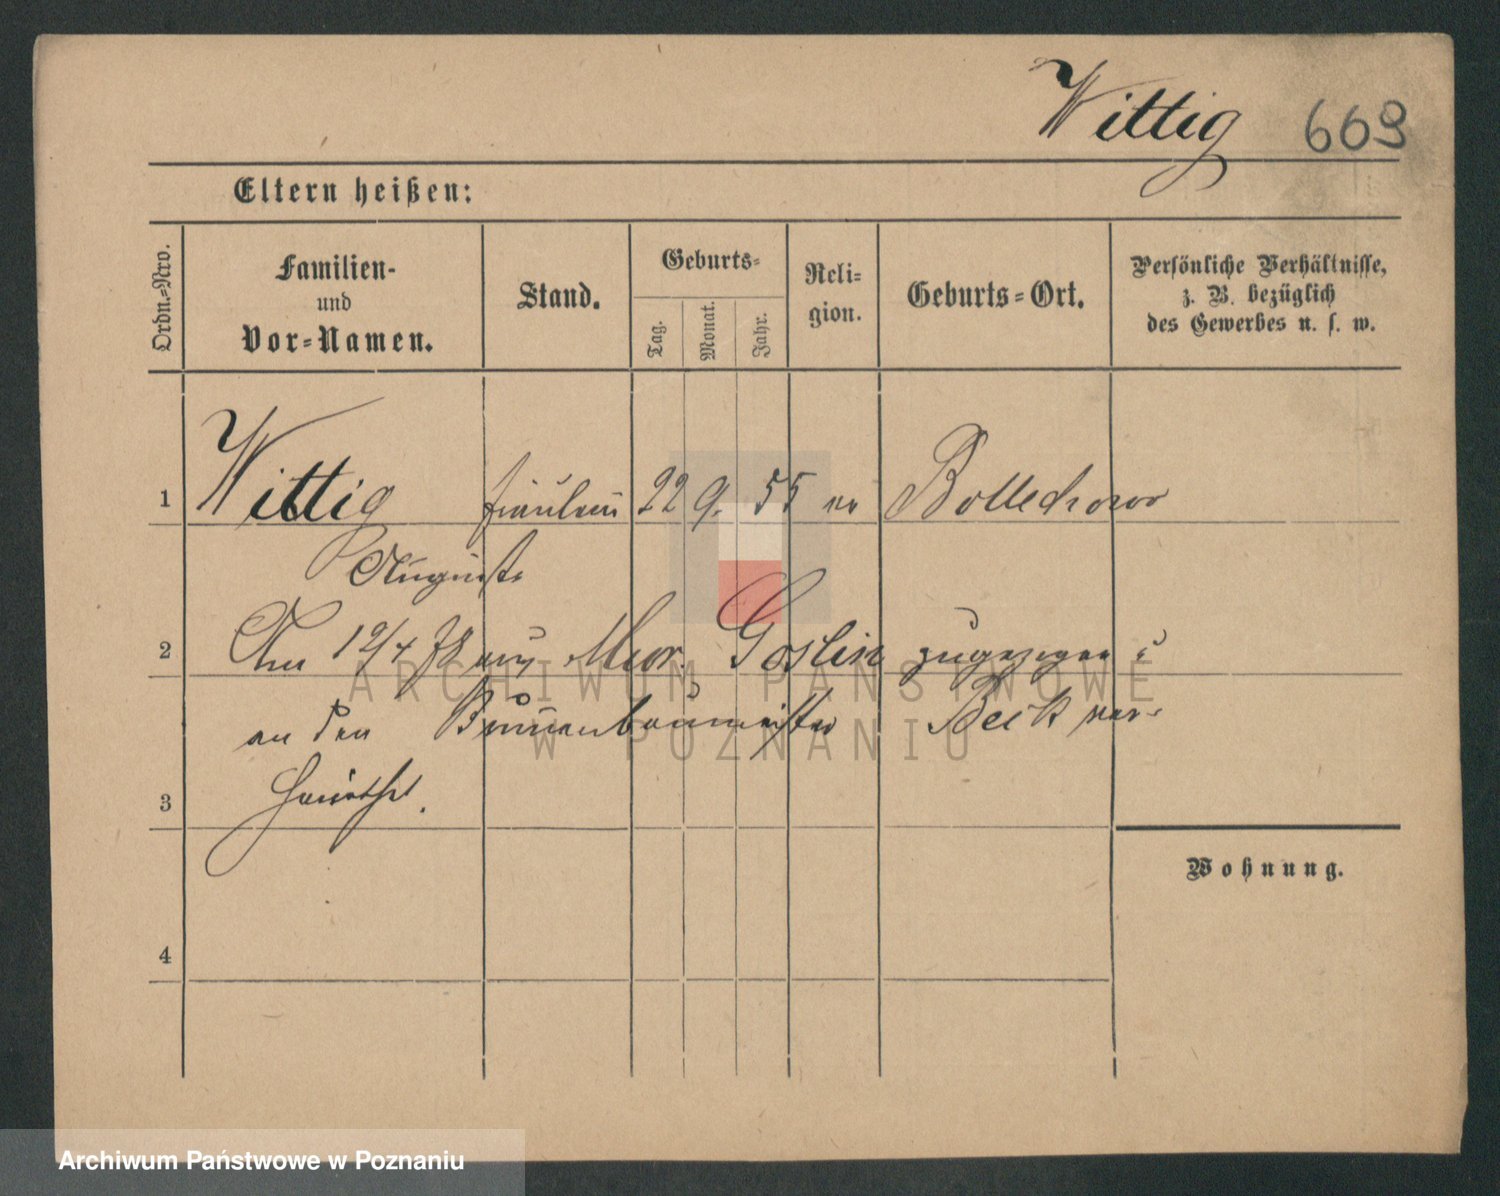 Wittig 669
Eltern heißen:
Ordn.-Nro.
Familien-
und
Vor-Namen.
Stand.
Geburts-
Tag.
Monat.
Jahr.
Reli-
gion.
Geburts-Ort.
Persönliche Verhältnisse,
z. B. bezüglich
des Gewerbes u. s. w.
1 Wittig Fräulein 22 9. 55 ev Bollechowo
Auguste
2 Am 19/4 78 aus Mur. Goslin zugezogen u
an den Brunnenbaumeister Beik ver-
3 heirathet.
Wohnung.
4
ARCHIWUM PAŃSTWOWE
W POZNANIU
Archiwum Państwowe w Poznaniu